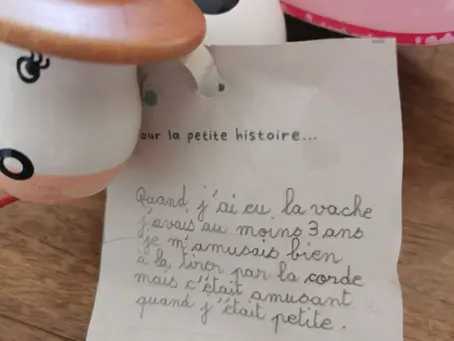 our la petite histoire...
Quand j'ai eu la vache
j'avais au moins 3 ans
je m'amusais bien
à la tirer par la corde
mais c'était amusant
quand j'était petite.